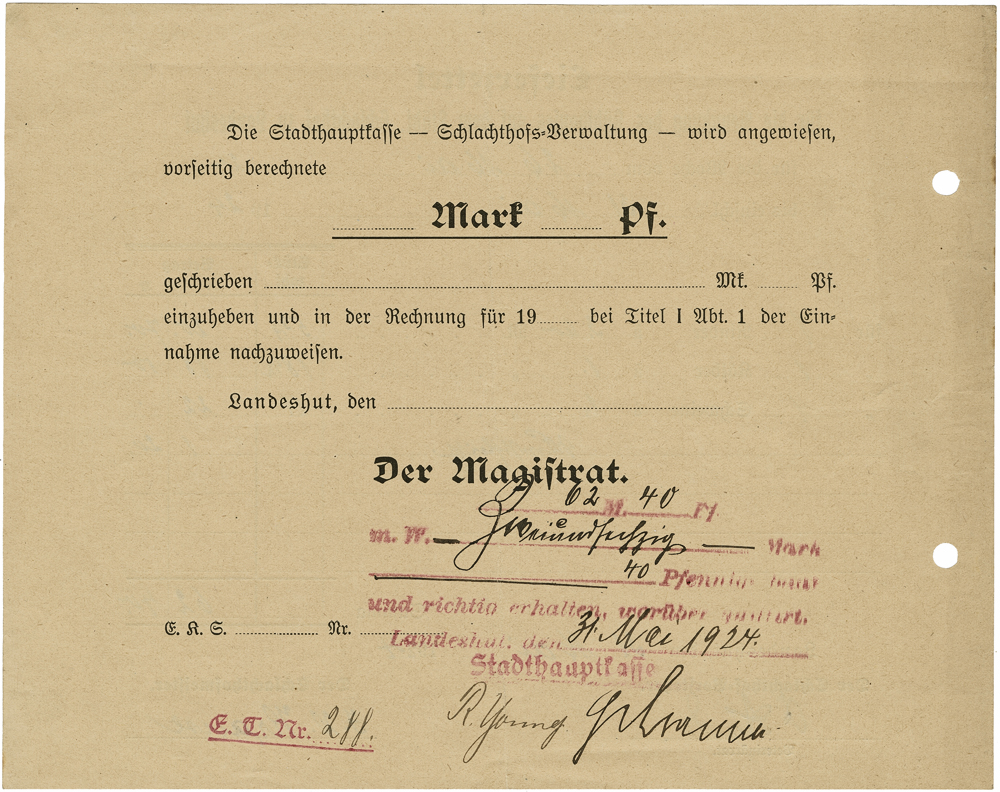 Die Stadthauptkasse — Schlachthofs-Verwaltung — wird angewiesen,
vorseitig berechnete
Mark Pf.
geschrieben Mk. Pf.
einzuheben und in der Rechnung für 19 bei Titel I Abt. 1 der Ein-
nahme nachzuweisen.
Landeshut, den
Der Magistrat.
62 M. 40 Pf
m. W. — Zweiundsechzig — Mark
40 Pfennig
und richtig erhalten, worüber quittirt.
E. K. S. Nr.
Landeshut, den 31. Mai 1924.
Stadthauptkasse
R. Young
E. T. Nr. 288.